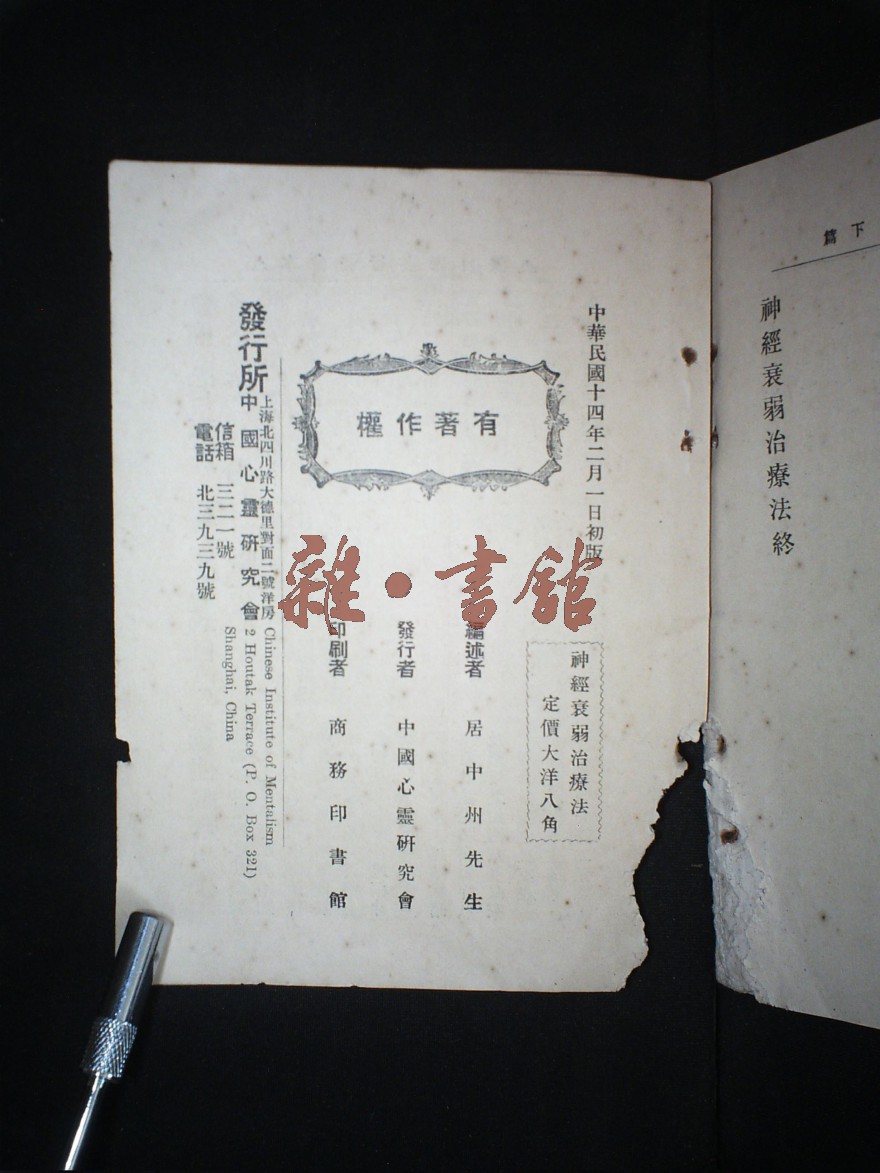 下篇
神經衰弱治療法終
中華民國十四年二月一日初版
有著作權
神經衰弱治療法
定價大洋八角
編述者 居中州先生
發行者 中國心靈研究會
印刷者 商務印書館
發行所
上海北四川路大德里對面二號洋房
中國心靈研究會
信箱 三二一號
電話 北三九三九號
Chinese Institute of Mentalism
2 Houtak Terrace (P. O. Box 321)
Shanghai, China
雜·書館